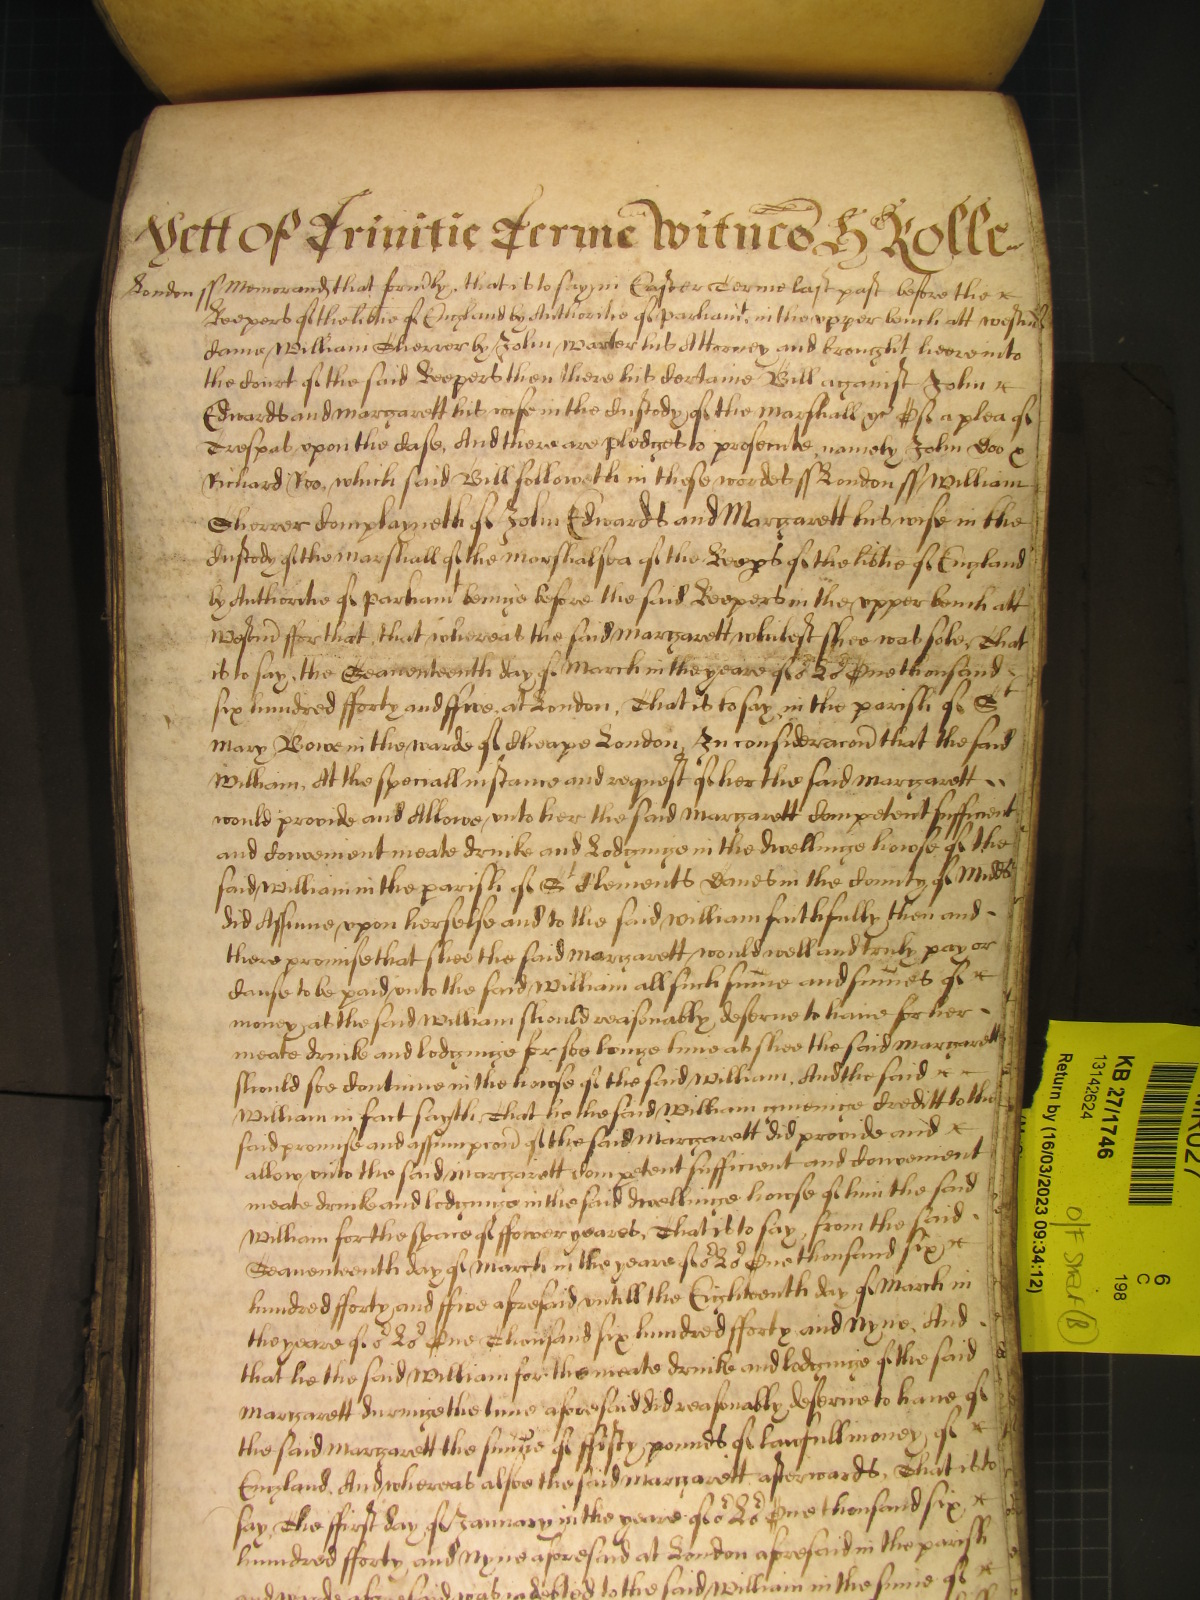 Yett of Trinitie Terme Witnes H Rolle
London ss Memorand that formly, that is to say, in Easter Terme last past before the
Keepers of the libtie of England by Authoritie of parliamt in the upper bench att Westmr
came William Sherrer by John Warter his Attorney and brought heere into
the Court of the said Keepers then there his certaine Bill against John
Edwards and Margarett his wife in the Custody of the Marshall &c Of a plea of
Trespas upon the Case, And there are pledges to prosecute, namely John Doo &
Richard Roo, which said Bill followeth in these wordes ss London ss William
Sherrer Complayneth of John Edwards and Margarett his wife in the
Custody of the Marshall of the Marshalsea of the Keeps of the libtie of England
by Authoritie of parliamt beinge before the said Keepers in the upper bench att
Westmr ffor that, that whereas the said Margarett whilest shee was sole, That
is to say, the Seaventeenth day of March in the yeare of or Lord One thousand
six hundred fforty and ffive, at London, That is to say, in the parish of St
Mary Bowe in the warde of Cheape London, In consideracon that the said
William, At the speciall instance and request of her the said Margarett
would provide and Allowe unto her the said Margarett Competent sufficient
and Convenient meate drinke and Lodginge in the dwellinge howse of the
said William in the parish of St Clements Danes in the County of Midds
did Assume upon herselfe and to the said William faithfully then and
there promise that shee the said Margarett would well and truly pay or
cause to be paid unto the said William all such sume and sumes of
money as the said William should reasonably deserve to have for her
meate drinke and lodginge for soe longe time as shee the said Margarett
should soe Continue in the howse of the said William, And the said
William in fact sayth, That he the said William giveinge Creditt to the
said promise and assumpcon of the said Margarett did provide and
allow unto the said Margarett Competent sufficient and Convenient
meate drinke and lodginge in the said dwellinge howse of him the said
William for the space of ffower yeares, That is to say, from the said
Seaventeenth day of March in the yeare of or Lord One thousand six
hundred fforty and ffive aforesaid untill the Eighteenth day of March in
the yeare of or Lord One Thousand six hundred fforty and Nyne, And
that he the said William for the meate drinke and lodginge of the said
Margarett duringe the time aforesaid did reasonably deserve to have of
the said Margarett the sume of ffifty pounds of lawfull money of
England, And whereas alsoe the said Margarett afterwards, That is to
say, The ffirst day of January in the yeare of or Lord One thousand six
hundred fforty and Nyne aforesaid at London aforesaid in the parish
and warde aforesaid was indebted to the said William in the sume of
KB 27/1746
13142624
Return by (16/03/2023 09:34:12)
6
C
198